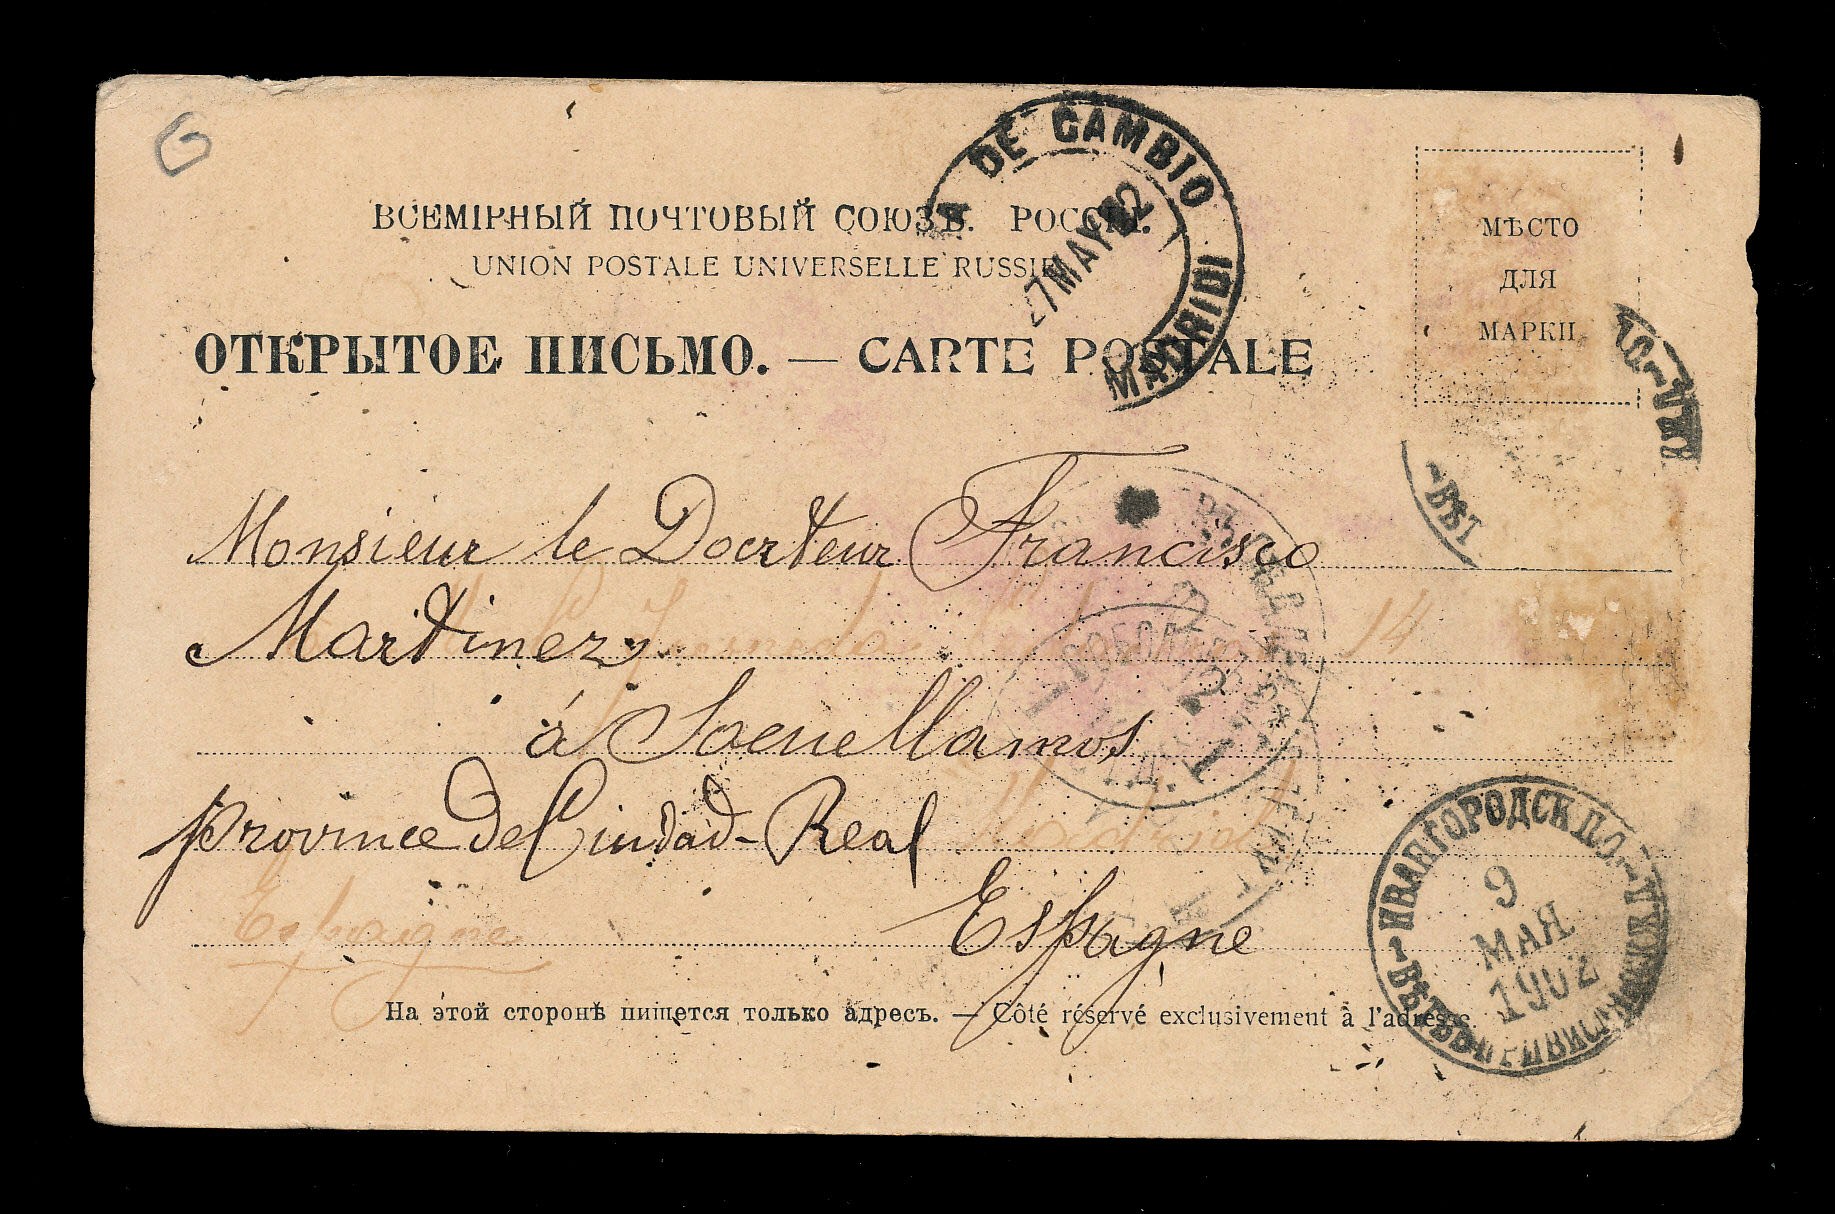 G
ВСЕМІРНЫЙ ПОЧТОВЫЙ СОЮЗЪ. РОССІЯ.
UNION POSTALE UNIVERSELLE RUSSIE
ОТКРЫТОЕ ПИСЬМО. — CARTE POSTALE
DE CAMBIO
27 MAY 02
MADRID
МѢСТО
ДЛЯ
МАРКИ
-ВѢТ
Monsieur le Docrteur Francisco
Martinez
14
á Socuellamos
province de Ciudad-Real
Madrid
Espagne
Espagne
ИВАНГОРОДСК ПО.
9
МАЯ
1902
На этой сторонѣ пишется только адресъ. — Côté réservé exclusivement à l'adresse.